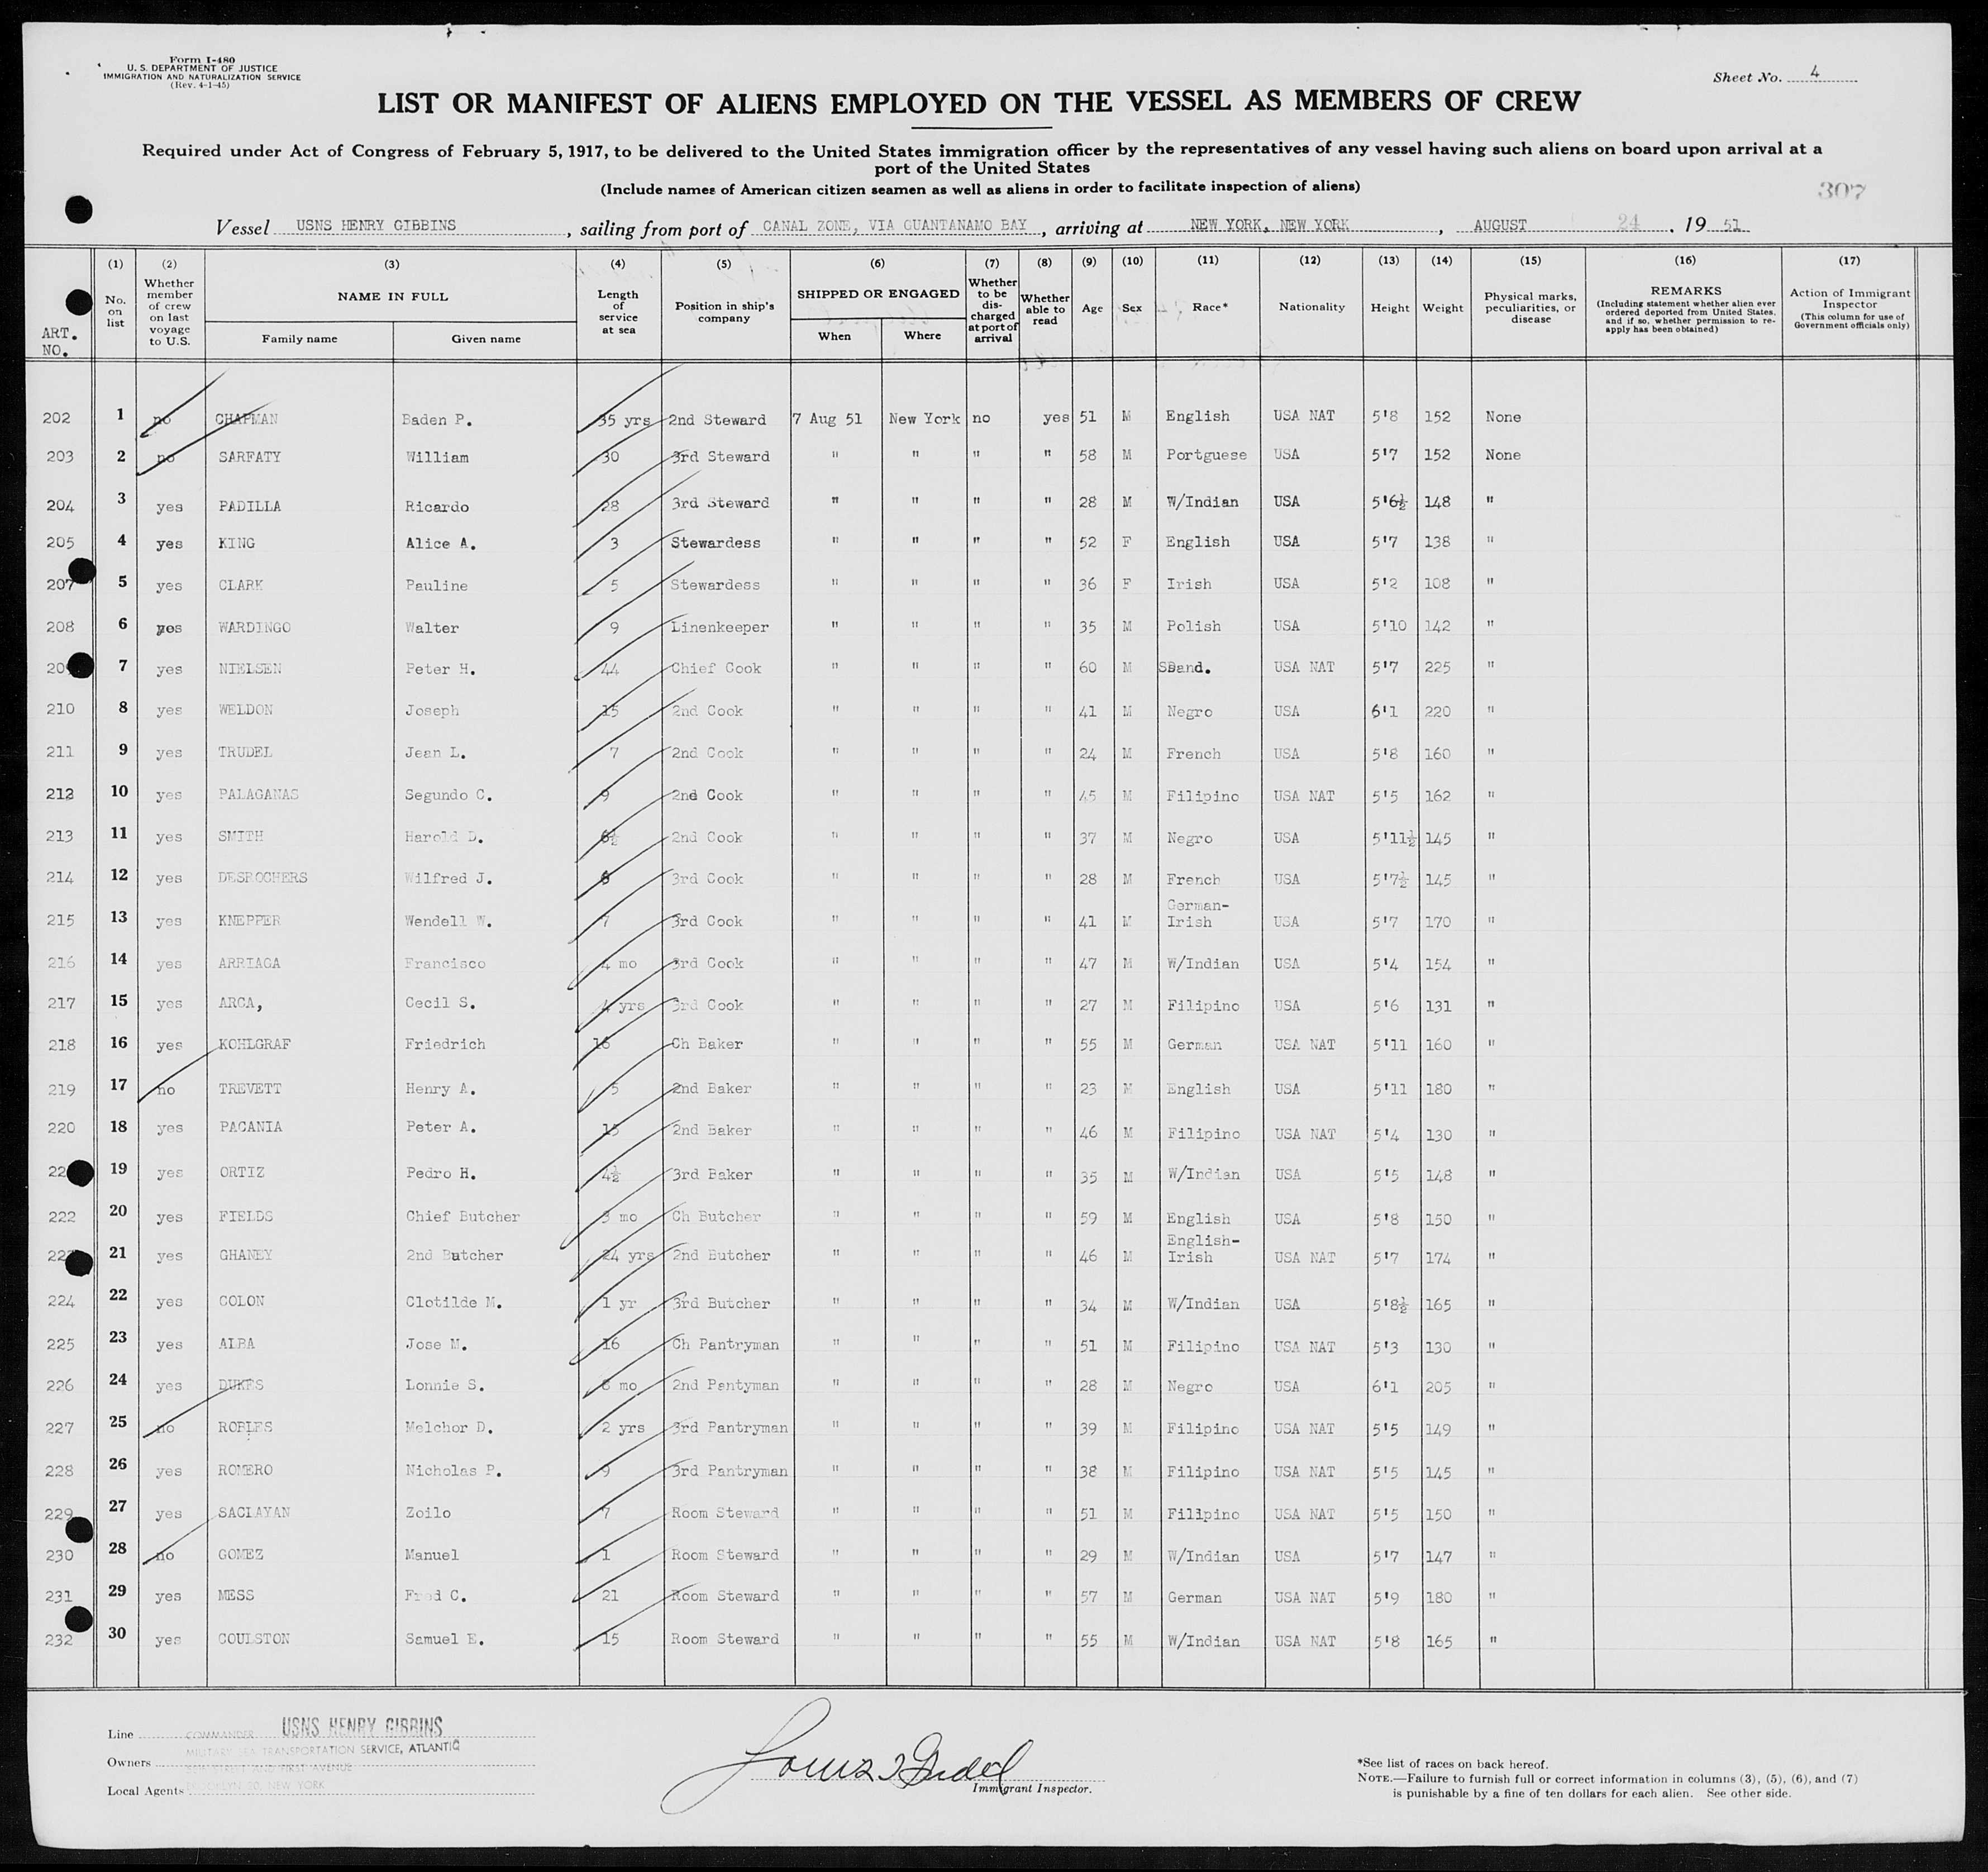 Form I-480
U. S. DEPARTMENT OF JUSTICE
IMMIGRATION AND NATURALIZATION SERVICE
(Rev. 4-1-45)
Sheet No. 4
LIST OR MANIFEST OF ALIENS EMPLOYED ON THE VESSEL AS MEMBERS OF CREW
Required under Act of Congress of February 5, 1917, to be delivered to the United States immigration officer by the representatives of any vessel having such aliens on board upon arrival at a
port of the United States
(Include names of American citizen seamen as well as aliens in order to facilitate inspection of aliens)
307
Vessel USNS HENRY GIBBINS, sailing from port of CANAL ZONE, VIA GUANTANAMO BAY, arriving at NEW YORK, NEW YORK, AUGUST 24, 19 51
ART. NO. (1) No. on list (2) Whether member of crew on last voyage to U.S. (3) NAME IN FULL Family name Given name (4) Length of service at sea (5) Position in ship's company (6) SHIPPED OR ENGAGED When Where (7) Whether to be discharged at port of arrival (8) Whether able to read (9) Age (10) Sex (11) Race* (12) Nationality (13) Height (14) Weight (15) Physical marks, peculiarities, or disease (16) REMARKS (Including statement whether alien ever ordered deported from United States, and if so, whether permission to reapply has been obtained) (17) Action of Immigrant Inspector (This column for use of Government officials only)
202 1 no CHAPMAN Baden P. 35 yrs 2nd Steward 7 Aug 51 New York no yes 51 M English USA NAT 5'8 152 None
203 2 no SARFATY William 30 3rd Steward " " " " 58 M Portguese USA 5'7 152 None
204 3 yes PADILLA Ricardo 28 3rd Steward " " " " 28 M W/Indian USA 5'6½ 148 "
205 4 yes KING Alice A. 3 Stewardess " " " " 52 F English USA 5'7 138 "
207 5 yes CLARK Pauline 5 Stewardess " " " " 36 F Irish USA 5'2 108 "
208 6 yes WARDINGO Walter 9 Linenkeeper " " " " 35 M Polish USA 5'10 142 "
20 7 yes NIELSEN Peter H. 44 Chief Cook " " " " 60 M Scand. USA NAT 5'7 225 "
210 8 yes WELDON Joseph 15 2nd Cook " " " " 41 M Negro USA 6'1 220 "
211 9 yes TRUDEL Jean L. 7 2nd Cook " " " " 24 M French USA 5'8 160 "
212 10 yes PALAGANAS Segundo C. 9 2nd Cook " " " " 45 M Filipino USA NAT 5'5 162 "
213 11 yes SMITH Harold D. 6½ 2nd Cook " " " " 37 M Negro USA 5'11½ 145 "
214 12 yes DESROCHERS Wilfred J. 8 3rd Cook " " " " 28 M French USA 5'7½ 145 "
215 13 yes KNEPPER Wendell W. 7 3rd Cook " " " " 41 M German-Irish USA 5'7 170 "
216 14 yes ARRIAGA Francisco 4 mo 3rd Cook " " " " 47 M W/Indian USA 5'4 154 "
217 15 yes ARCA, Cecil S. 4 yrs 3rd Cook " " " " 27 M Filipino USA 5'6 131 "
218 16 yes KOHLGRAF Friedrich 16 Ch Baker " " " " 55 M German USA NAT 5'11 160 "
219 17 no TREVETT Henry A. 5 2nd Baker " " " " 23 M English USA 5'11 180 "
220 18 yes PACANIA Peter A. 15 2nd Baker " " " " 46 M Filipino USA NAT 5'4 130 "
22 19 yes ORTIZ Pedro H. 4½ 3rd Baker " " " " 35 M W/Indian USA 5'5 148 "
222 20 yes FIELDS Chief Butcher 3 mo Ch Butcher " " " " 59 M English USA 5'8 150 "
223 21 yes GHANEY 2nd Butcher 24 yrs 2nd Butcher " " " " 46 M English-Irish USA NAT 5'7 174 "
224 22 yes COLON Clotilde M. 1 yr 3rd Butcher " " " " 34 M W/Indian USA 5'8½ 165 "
225 23 yes ALBA Jose M. 16 Ch Pantryman " " " " 51 M Filipino USA NAT 5'3 130 "
226 24 yes DUKES Lonnie S. 8 mo 2nd Pantyman " " " " 28 M Negro USA 6'1 205 "
227 25 no ROBLES Melchor D. 2 yrs 3rd Pantryman " " " " 39 M Filipino USA NAT 5'5 149 "
228 26 yes ROMERO Nicholas P. 9 3rd Pantryman " " " " 38 M Filipino USA NAT 5'5 145 "
229 27 yes SACLAYAN Zoilo 7 Room Steward " " " " 51 M Filipino USA NAT 5'5 150 "
230 28 no GOMEZ Manuel 1 Room Steward " " " " 29 M W/Indian USA 5'7 147 "
231 29 yes MESS Fred C. 21 Room Steward " " " " 57 M German USA NAT 5'9 180 "
232 30 yes COULSTON Samuel E. 15 Room Steward " " " " 55 M W/Indian USA NAT 5'8 165 "
Line COMMANDER USNS HENRY GIBBINS
MILITARY SEA TRANSPORTATION SERVICE, ATLANTIC
Owners 58TH STREET AND FIRST AVENUE
Local Agents BROOKLYN 20, NEW YORK
Immigrant Inspector.
*See list of races on back hereof.
NOTE.—Failure to furnish full or correct information in columns (3), (5), (6), and (7)
is punishable by a fine of ten dollars for each alien. See other side.